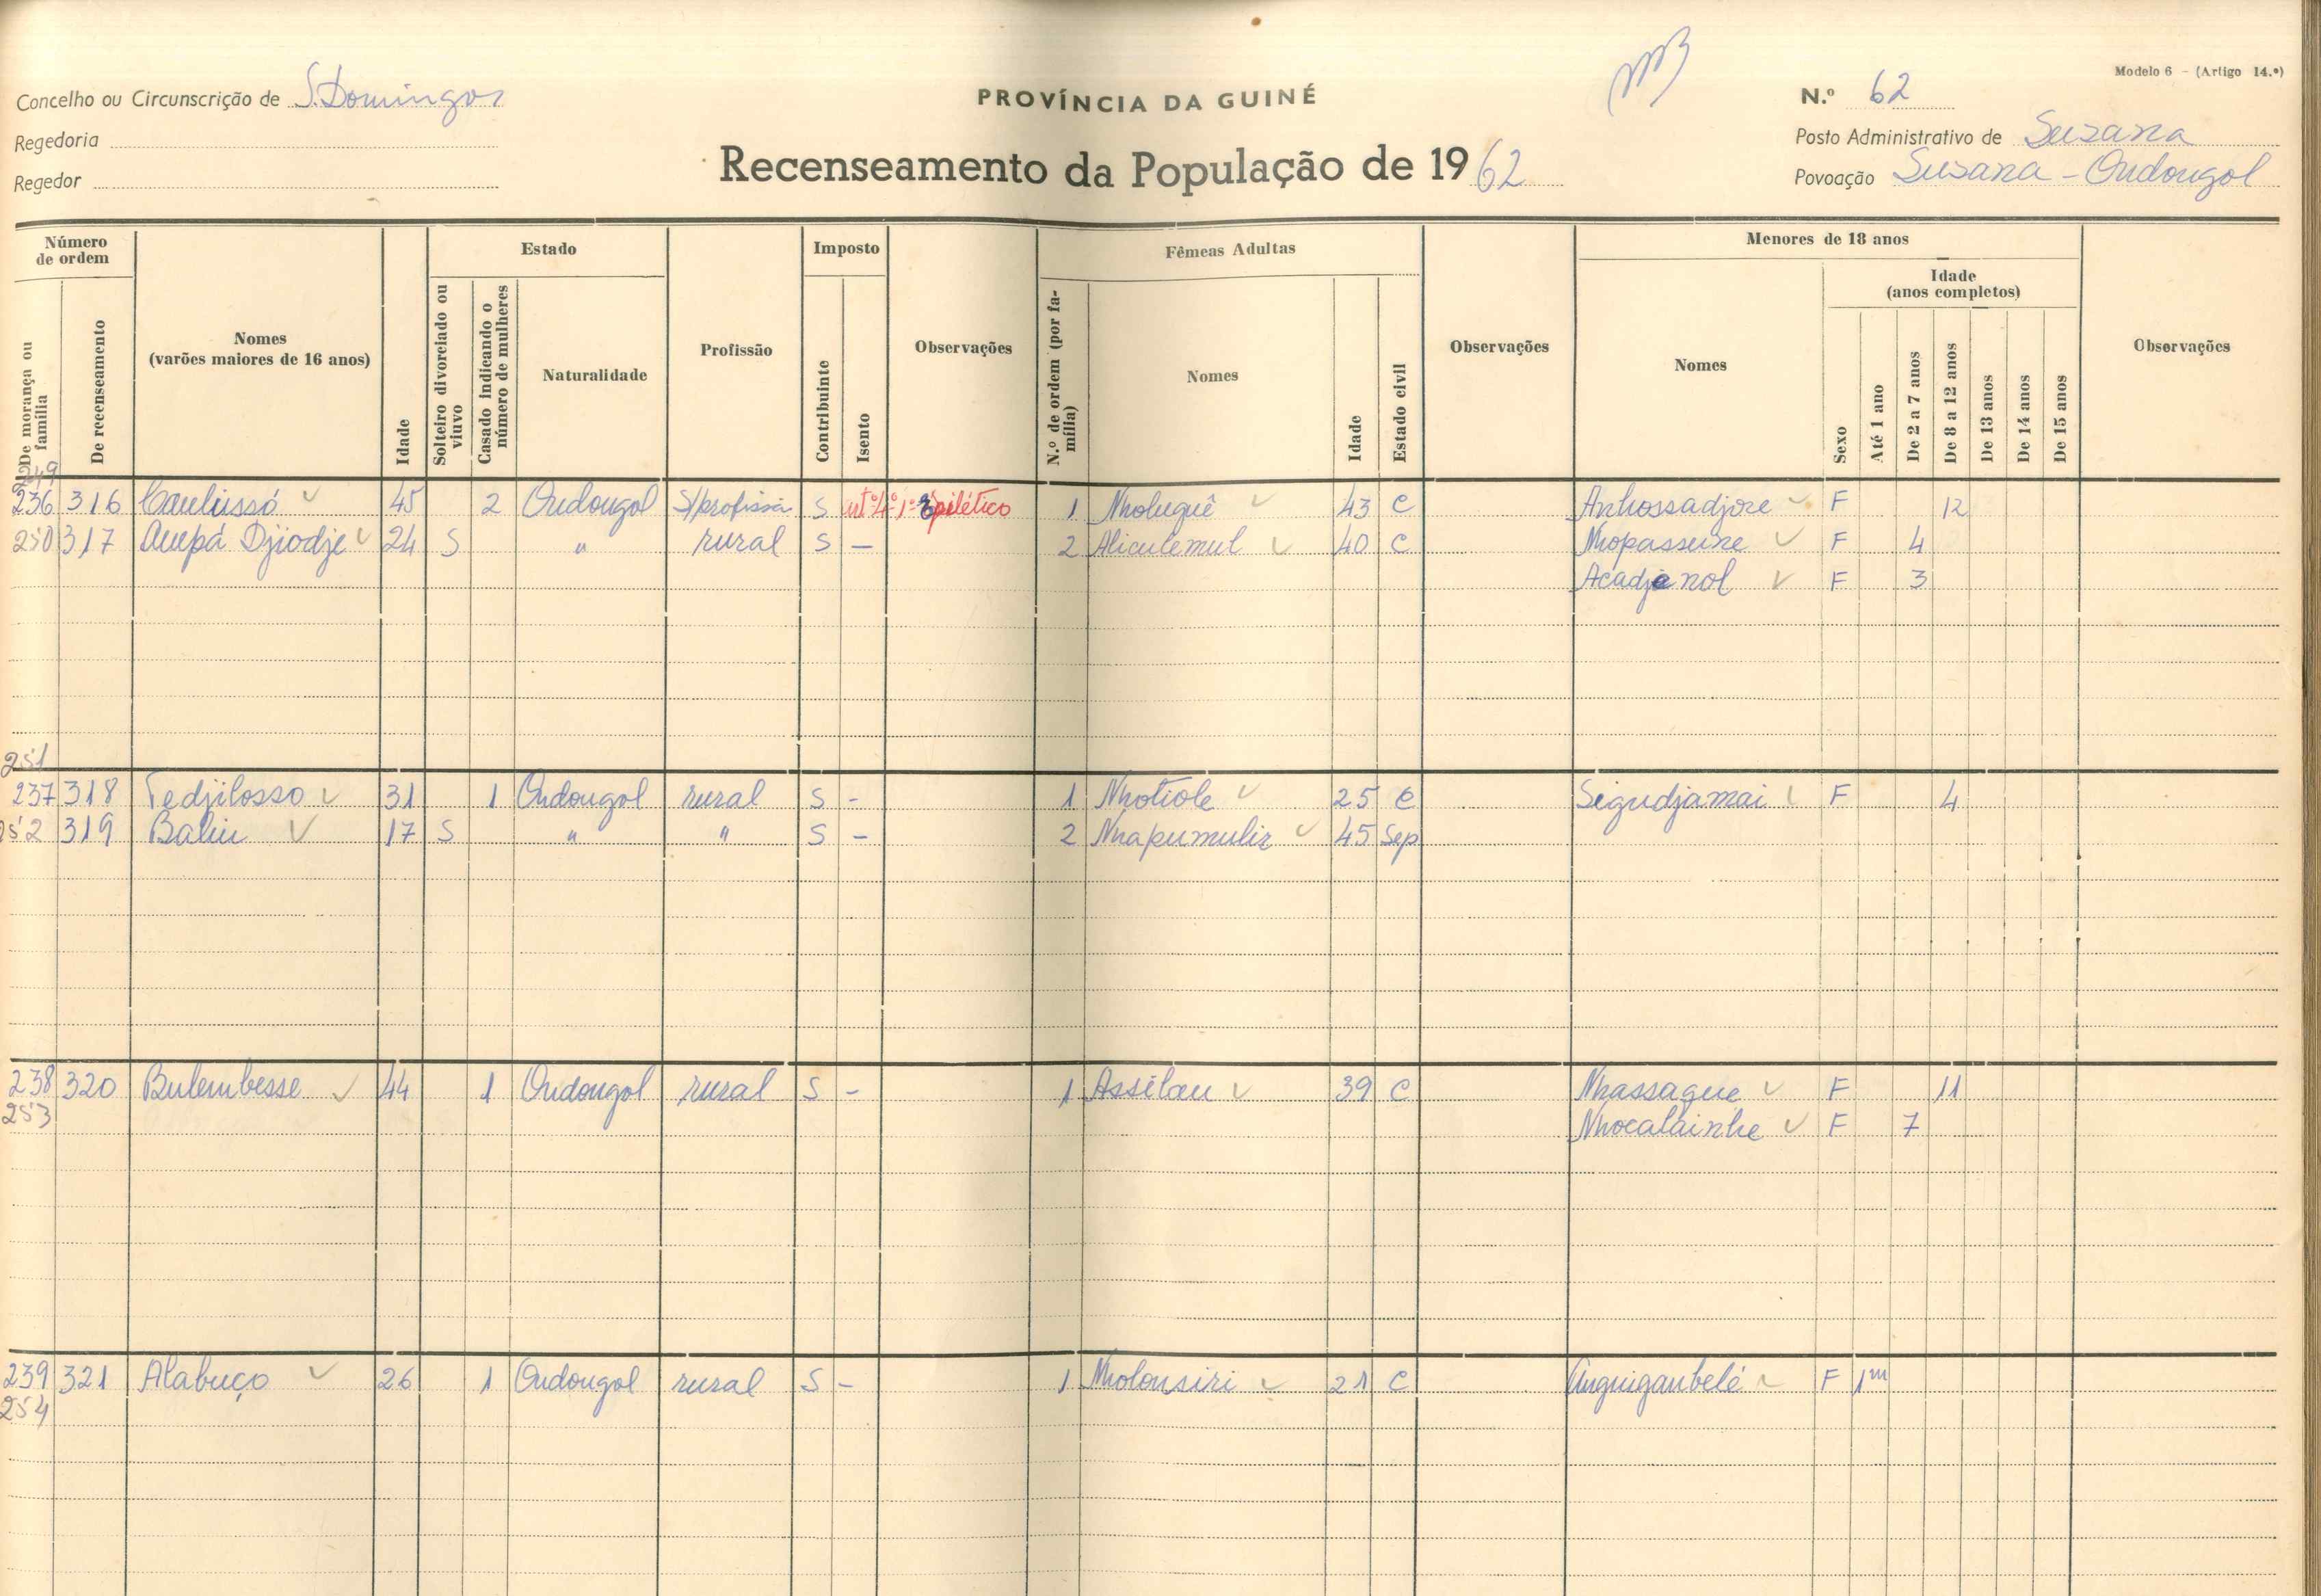 Modelo 6 - (Artigo 14.º)
Concelho ou Circunscrição de S. Domingos
PROVÍNCIA DA GUINÉ
N.º 62
Regedoria
Posto Administrativo de Suzana
Regedor
Recenseamento da População de 1962
Povoação Suzana - Ondongol
Número de ordem
De morança ou família
De recenseamento
Nomes (varões maiores de 16 anos)
Idade
Estado
Solteiro divorciado ou viuvo
Casado indicando o número de mulheres
Naturalidade
Profissão
Imposto
Contribuinte
Isento
Observações
Fêmeas Adultas
N.º de ordem (por família)
Nomes
Idade
Estado civil
Observações
Menores de 18 anos
Nomes
Sexo
Idade (anos completos)
Até 1 ano
De 2 a 7 anos
De 8 a 12 anos
De 13 anos
De 14 anos
De 15 anos
Observações
249
236 316 Caulussó 45 2 Ondongol S/profissão S Epilético 1 Nholuquê 43 C Anhossadjore F 12
250 317 Auepá Djiodje 24 S " rural S — 2 Aliculemul 40 C Nhopasseine F 4
Acadjenol F 3
251
237 318 Tedjilosso 31 1 Ondongol rural S - 1 Nhotiole 25 C Segudjamai F 4
252 319 Baliu 17 S " " S — 2 Nhapumulir 45 Sep
238 320 Bulembesse 44 1 Ondongol rural S - 1 Assilau 39 C Nhassague F 11
253 Nhocalainhe F 7
239 321 Alabuço 26 1 Ondongol rural S - 1 Nholonsiri 21 C Anguiganbelé F 1m
254